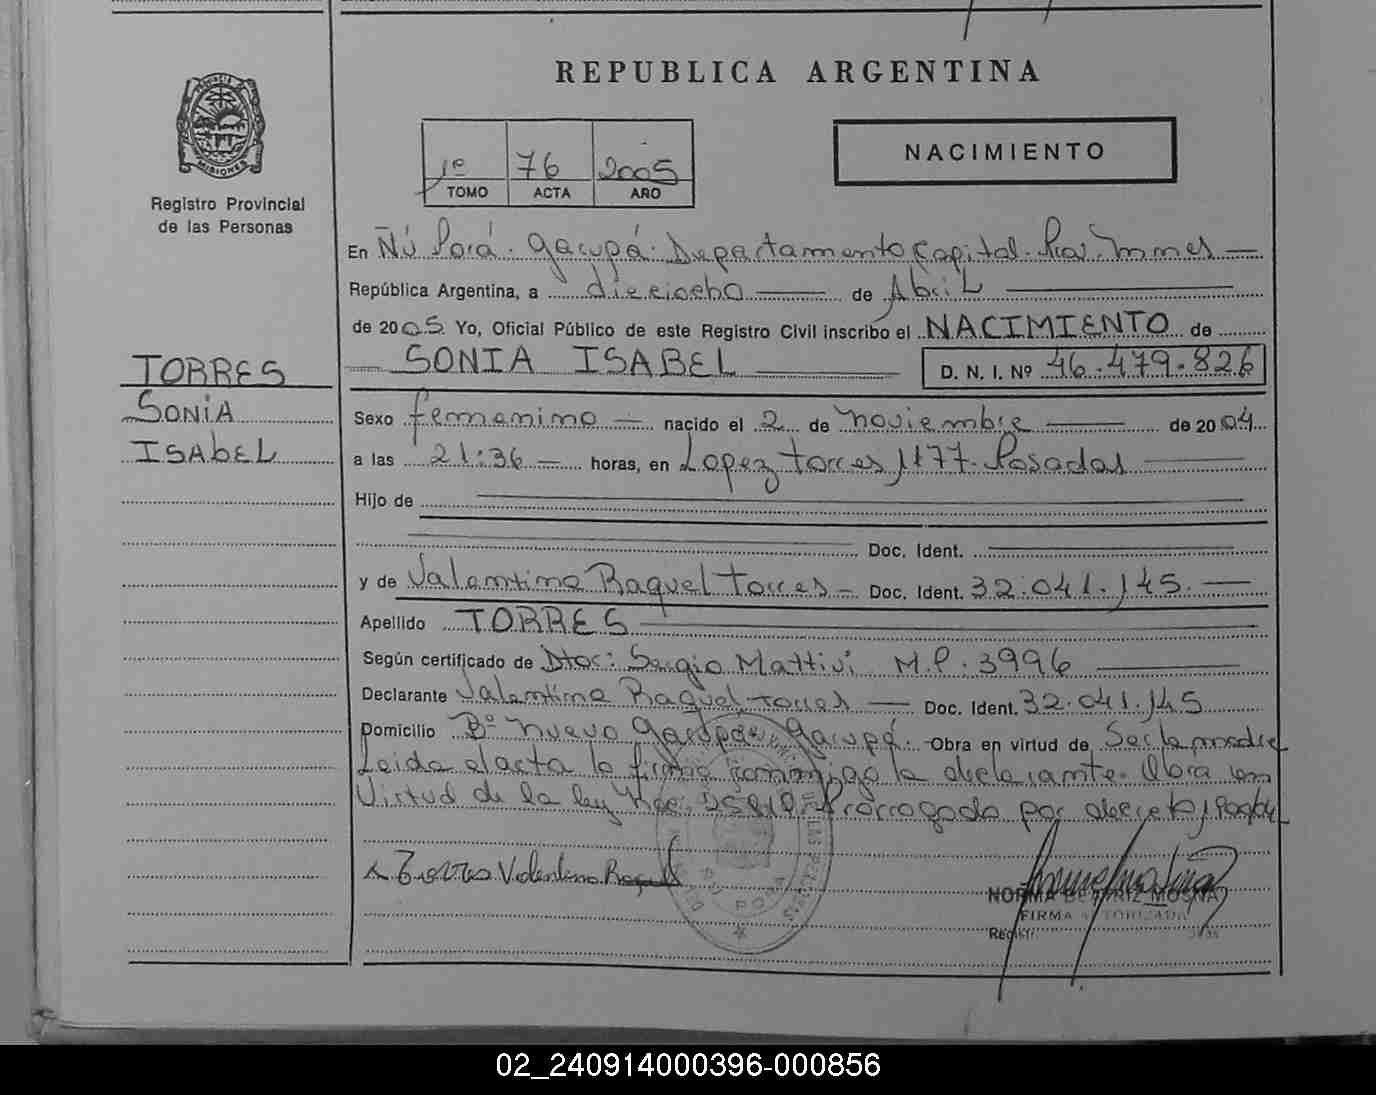 REPUBLICA ARGENTINA
PROVINCIA DE
MISIONES
Registro Provincial
de las Personas
1º 76 2005
TOMO ACTA AÑO
NACIMIENTO
En Ñú Porá. Garupá. Departamento Capital. Pcia. Mnes
República Argentina, a dieciocho de Abril
de 2005 Yo, Oficial Público de este Registro Civil inscribo el NACIMIENTO de
SONIA ISABEL D. N. I. Nº 46.479.826
TORRES
SONIA
ISABEL
Sexo femenino nacido el 2 de noviembre de 2004
a las 21:36 horas, en Lopez Torres 1177. Posadas
Hijo de
Doc. Ident.
y de Valentina Raquel Torres Doc. Ident. 32.041.145
Apellido TORRES
Según certificado de Dtor: Sergio Mattivi M.P. 3996
Declarante Valentina Raquel Torres Doc. Ident. 32.041.145
Domicilio Bº nuevo Garupá. Garupá. Obra en virtud de Ser la madre
Leida el acta la firma conmigo la declarante. Obra en
Virtud de la ley Nro. prorrogada por decreto
Torres Valentina Raquel
NORMA BEATRIZ MOSNA
FIRMA AUTORIZADA
02_240914000396-000856